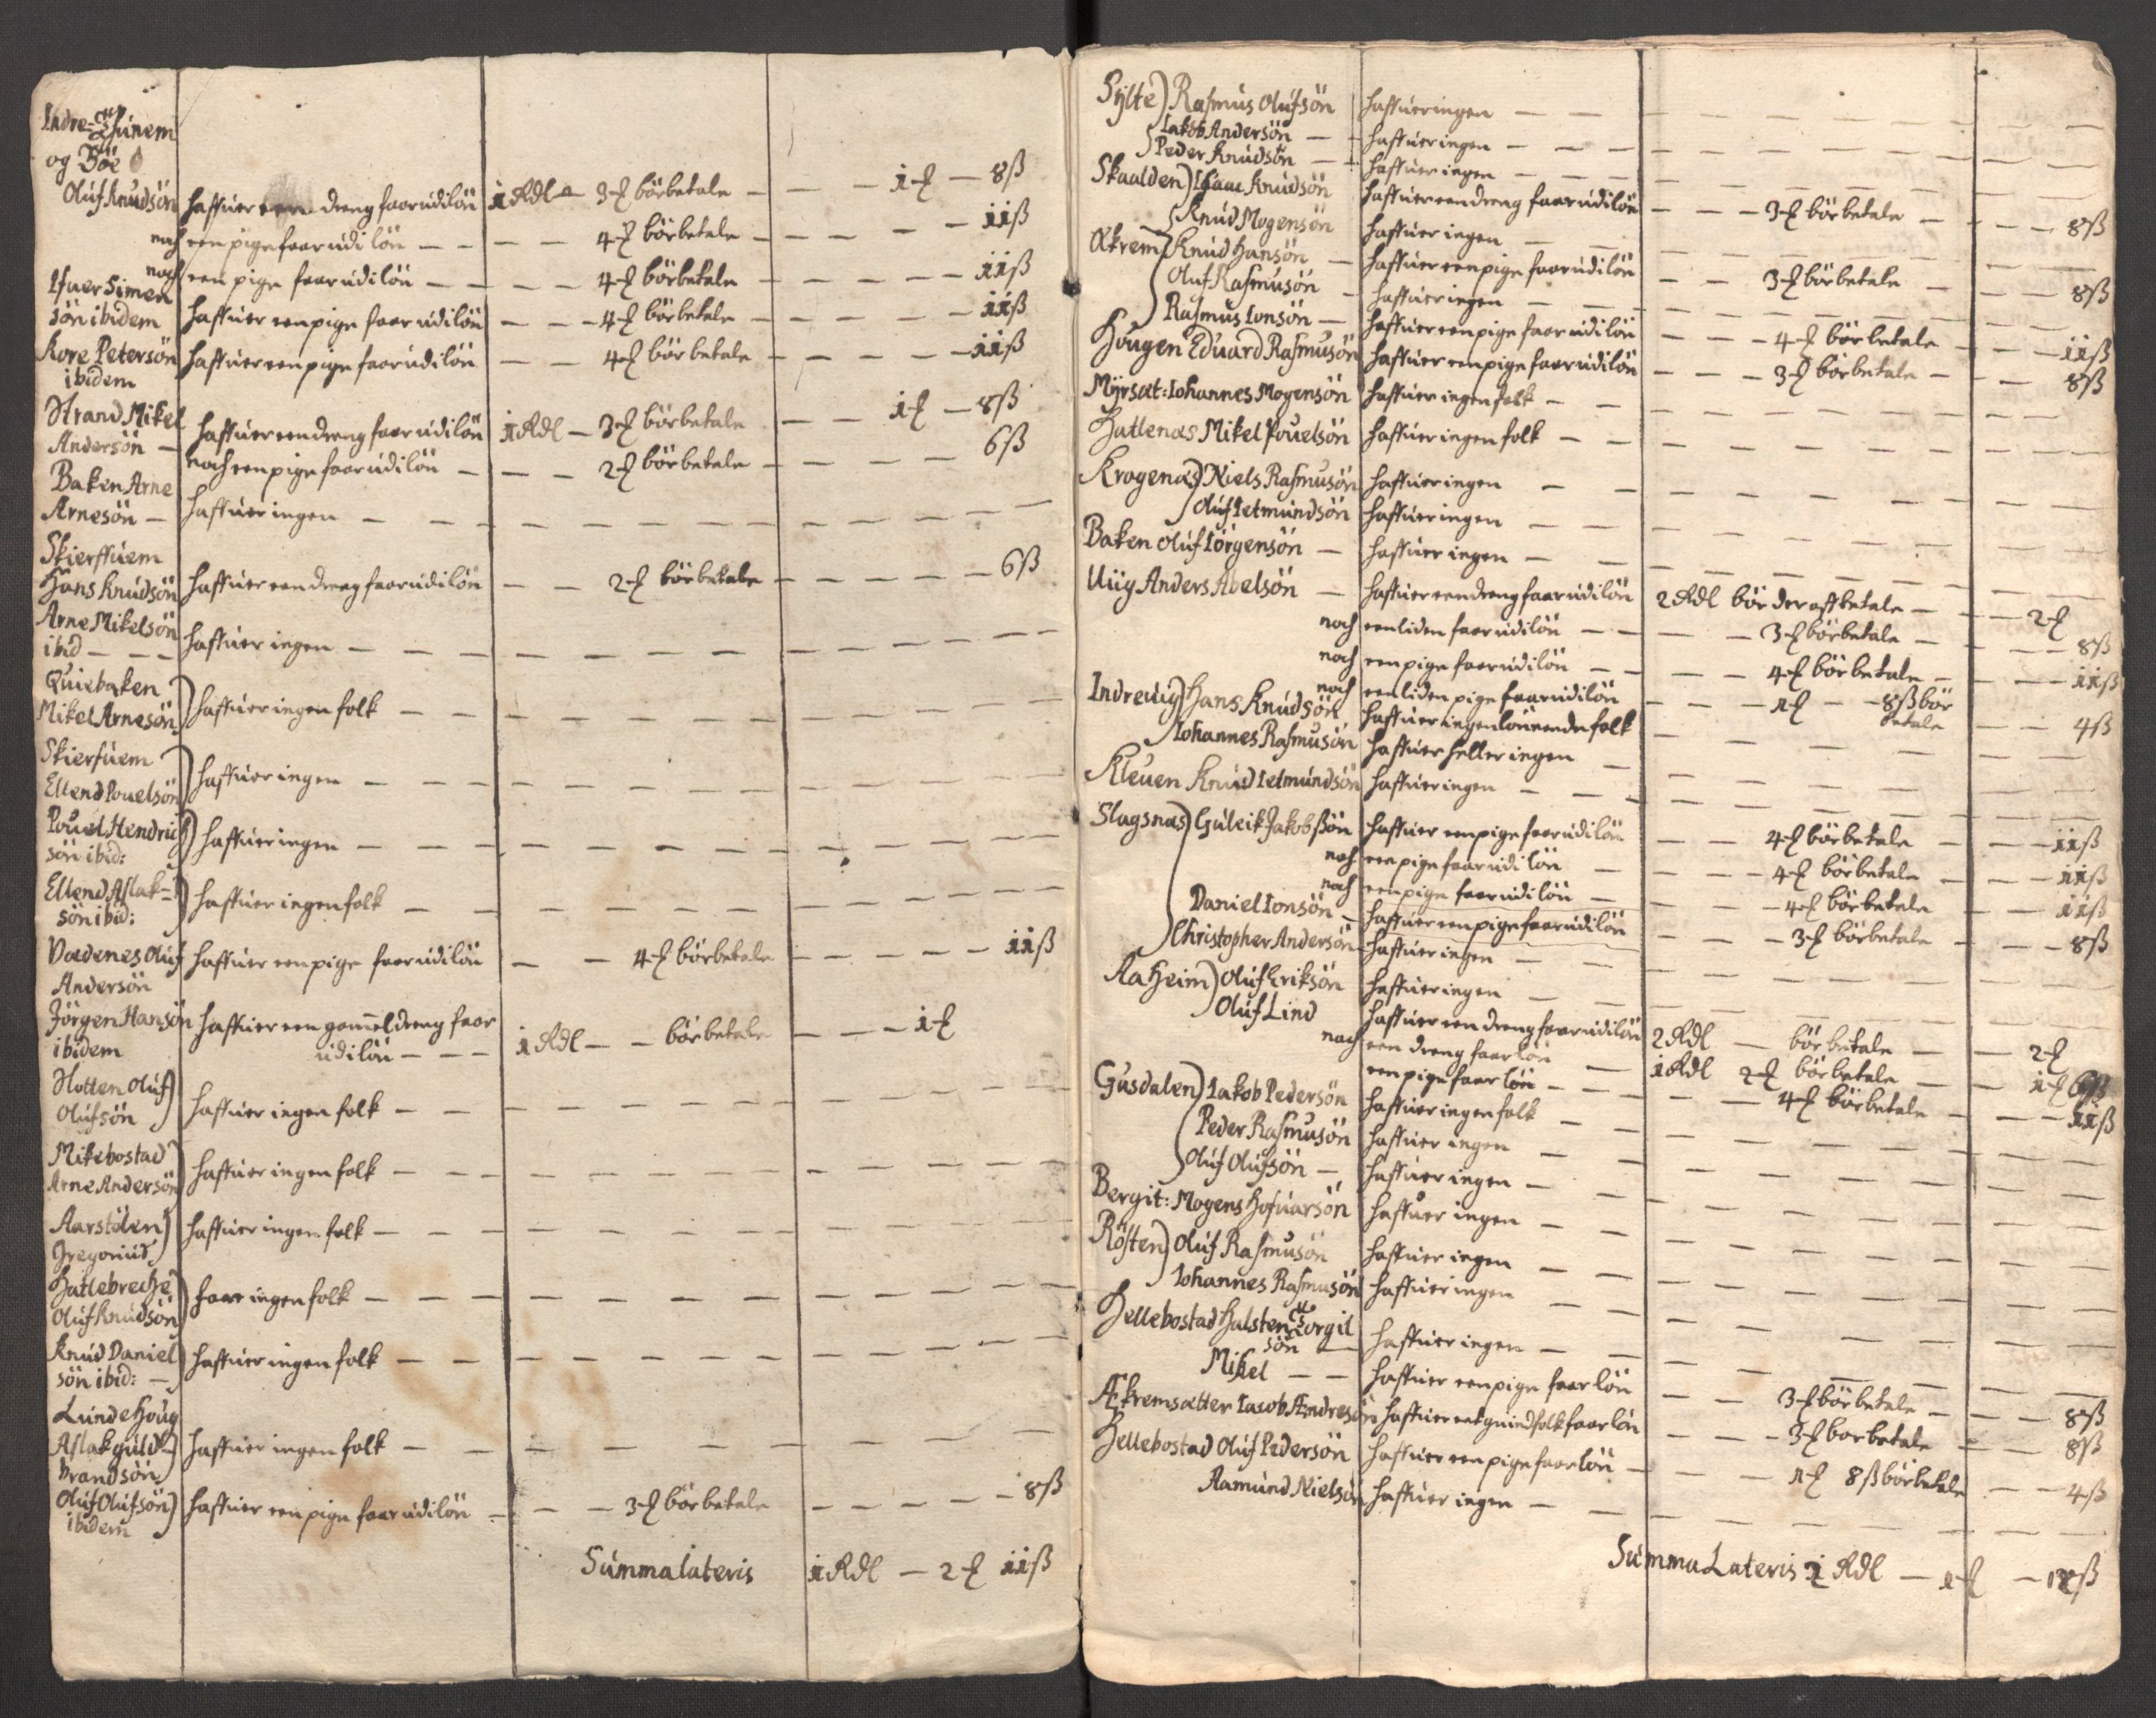 Indre-Thunem
og Böe
Oluf Knudsön haffuer een dreng faar udi lön 1 Rdl - 3 ℔ bör betale - - - 1 ℔ - 8 ß
noch een pige faar udi lön - - - - 4 ℔ bör betale - - - - - 11 ß
noch een pige faar udi lön - - - - 4 ℔ bör betale - - - - - 11 ß
Ifuer Simen
sön ibidem haffuer een pige faar udi lön - - - 4 ℔ bör betale - - - - - 11 ß
Kore Petersön haffuer een pige faar udi lön - - 4 ℔ bör betale - - - - - 11 ß
ibidem
Strand Mikel
Andersön - haffuer een dreng faar udi lön 1 Rdl - 3 ℔ bör betale - - - 1 ℔ - 8 ß
noch een pige faar udi lön - - - 2 ℔ bör betale - - - - 6 ß
Baken Arne
Arnesön - haffuer ingen - - -
Skierffuem
Hans Knudsön haffuer een dreng faar udi lön - - 2 ℔ bör betale - - - - - 6 ß
Arne Mikelsön
ibid - - - haffuer ingen - - -
Quiebaken
Mikel Arnesön haffuer ingen folk - - -
Skierfuem
Ellend Pouelsön haffuer ingen - - -
Pouel Hendrich
sön ibid: haffuer ingen - - -
Ellend Aslak=
sön ibid: haffuer ingen folk - - -
Vædenes Oluf haffuer een pige faar udi lön - - 4 ℔ bör betale - - - - - 11 ß
Andersön
Jörgen Hansön haffuer een gammel dreng faar
ibidem udi lön - - - 1 Rdl - - bör betale - - - 1 ℔
Hotten Oluf
Olufsön haffuer ingen folk - - -
Mikebostad
Arne Andersön haffuer ingen folk - - -
Aarstölen haffuer ingen folk - - -
Gregorius
Hatlebreche
Oluf Knudsön faar ingen folk - - -
Knud Daniel
sön ibid: - haffuer ingen folk - - -
Lunde Houg
Aslak Guld=
brandsön haffuer ingen folk - - -
Oluf Olufsön haffuer een pige faar udi lön - - - 3 ℔ bör betale - - - - - 8 ß
ibidem
Summa lateris 1 Rdl - 2 ℔ 11 ß
Sylte Rasmus Olufsön haffuer ingen - - -
Iakob Andersön - - haffuer ingen - - -
Peder Knudsön - - haffuer ingen - - -
Skaalden Isaac Knudsön haffuer een dreng faar udi lön - - - 3 ℔ bör betale - - - 8 ß
Knud Mogensön haffuer ingen - - -
Ækrem Knud Hansön - haffuer een pige faar udi lön - - 3 ℔ bör betale - - - 8 ß
Oluf Rasmusön - haffuer ingen - - -
Rasmus Ionsön - haffuer een pige faar udi lön - - - 4 ℔ bör betale - - - 11 ß
Hougen Eduard Rasmusön haffuer een pige faar udi lön - - - 3 ℔ bör betale - - - 8 ß
Myrsæt: Iohannes Mogensön haffuer ingen folk - - -
Hatlenæs Mikel Pouelsön haffuer ingen folk - - -
Krogenæs Niels Rasmusön haffuer ingen - - -
Oluf Ietmundsön haffuer ingen - - -
Baken Oluf Iörgensön - haffuer ingen - - -
Uiig Anders Abelsön - haffuer een dreng faar udi lön 2 Rdl bör der aff betale - - - 2 ℔
noch een liden faar udi lön - - - - 3 ℔ bör betale - - - 8 ß
noch een pige faar udi lön - - - - 4 ℔ bör betale - - - 11 ß
noch een liden pige faar udi lön - - - 1 ℔ - - 8 ß bör betale - - 4 ß
Indreuig Hans Knudsön haffuer ingen lönnende folk
Iohannes Rasmusön haffuer heller ingen - - -
Kleuen Knud Ietmundsön haffuer ingen - - -
Slagsnæs Guleik Jakobsön haffuer een pige faar udi lön - - 4 ℔ bör betale - - - 11 ß
noch een pige faar udi lön - - - 4 ℔ bör betale - - - 11 ß
noch een pige faar udi lön - - - 4 ℔ bör betale - - 11 ß
Daniel Ionsön - haffuer een pige faar udi lön - - - 3 ℔ bör betale - - - 8 ß
Christopher Andersön haffuer ingen - - -
Aaheim Oluf Eriksön haffuer ingen - - -
Oluf Lind haffuer een dreng faar udi lön 2 Rdl - bör betale - - 2 ℔
noch een dreng faar lön - 1 Rdl 2 ℔ bör betale - - 1 ℔ 6 ß
een pige faar lön - - - - 4 ℔ bör betale - - - 11 ß
Gusdalen Iakob Pedersön haffuer ingen folk - - -
Peder Rasmusön haffuer ingen - - -
Oluf Olufsön - haffuer ingen - - -
Bergit: Mogens Hofuarsön haffuer ingen - - -
Rösten Oluf Rasmusön haffuer ingen - - -
Iohannes Rasmusön haffuer ingen - - -
Hellebostad Halsten Torgil
sön - haffuer ingen - - -
Mikel - - haffuer een pige faar lön - - 3 ℔ bör betale - - - 8 ß
Ækremsætter Iacob Andresön haffuer eet quindfolk faar lön - - - 3 ℔ bör betale - - 8 ß
Hellebostad Oluf Pedersön haffuer een pige faar lön - - - 1 ℔ 8 ß bör betale - - 4 ß
Aamund Nielsön haffuer ingen - - -
Summa Lateris Rdl - 1 ℔ - ß